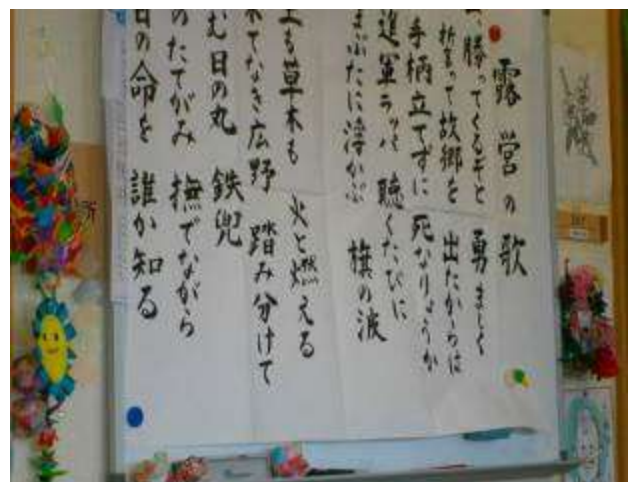 露営の歌
勝ってくるぞと 勇ましく
誓って故郷を 出たからは
手柄立てずに 死なりょうか
進軍ラッパ 聴くたびに
まぶたに浮かぶ 旗の波
土も草木も 火と燃える
果てなき広野 踏み分けて
む日の丸 鉄兜
のたてがみ 撫でながら
日の命を 誰か知る